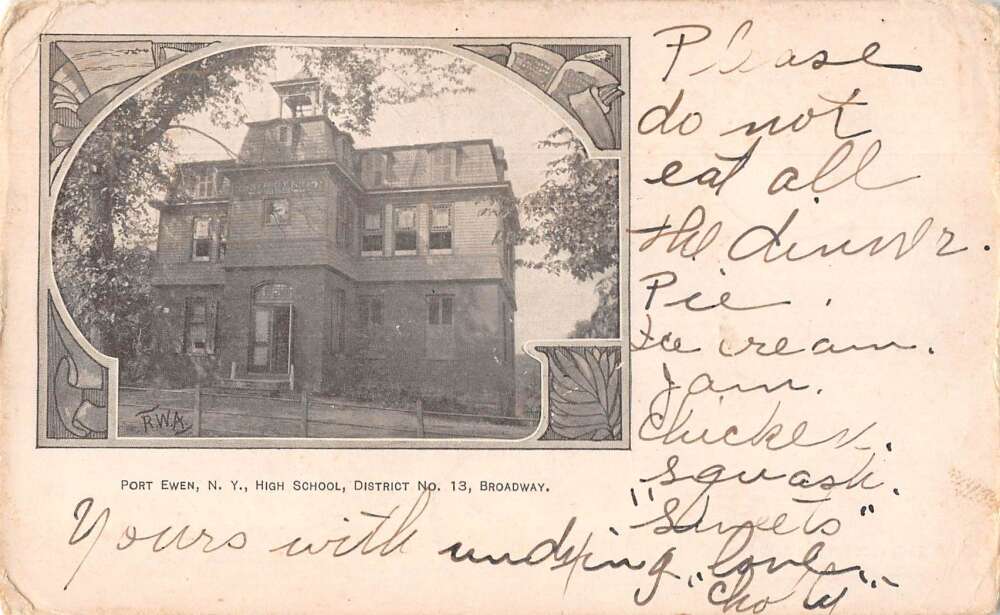 Please
do not
eat all
the dinner.
Pie.
Ice cream.
Jam.
Chicken.
squash.
"Sweets"
R.W.A.
PORT EWEN, N. Y., HIGH SCHOOL, DISTRICT NO. 13, BROADWAY.
Yours with undying "love"